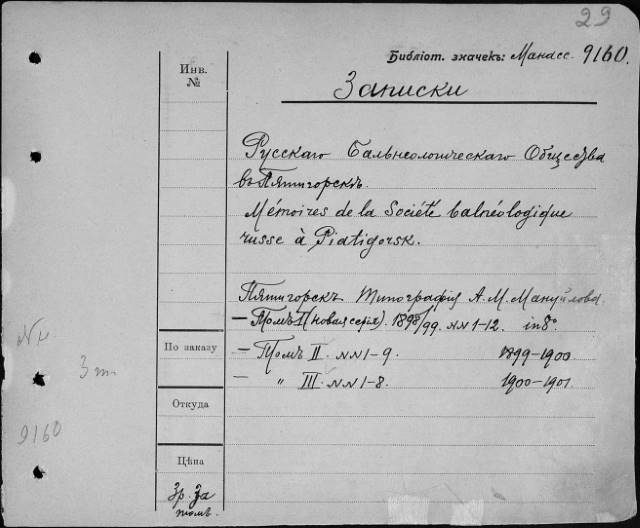 29
Библіот. значекъ: Манасс. 9160.
Инв.
№
Записки
Русскаго Бальнеологическаго Общества
въ Пятигорскѣ.
Mémoires de la Société balnéologique
russe à Piatigorsk.
Пятигорскъ Типографія А. М. Мануйлова.
— Томъ I (новая серія). 1898/99. NN 1-12. in 8°
По заказу
— Томъ II. NN 1-9. 1899-1900.
— " III. NN 1-8. 1900-1901.
3 т.
Откуда
9160
Цѣна
3р. за
томъ.